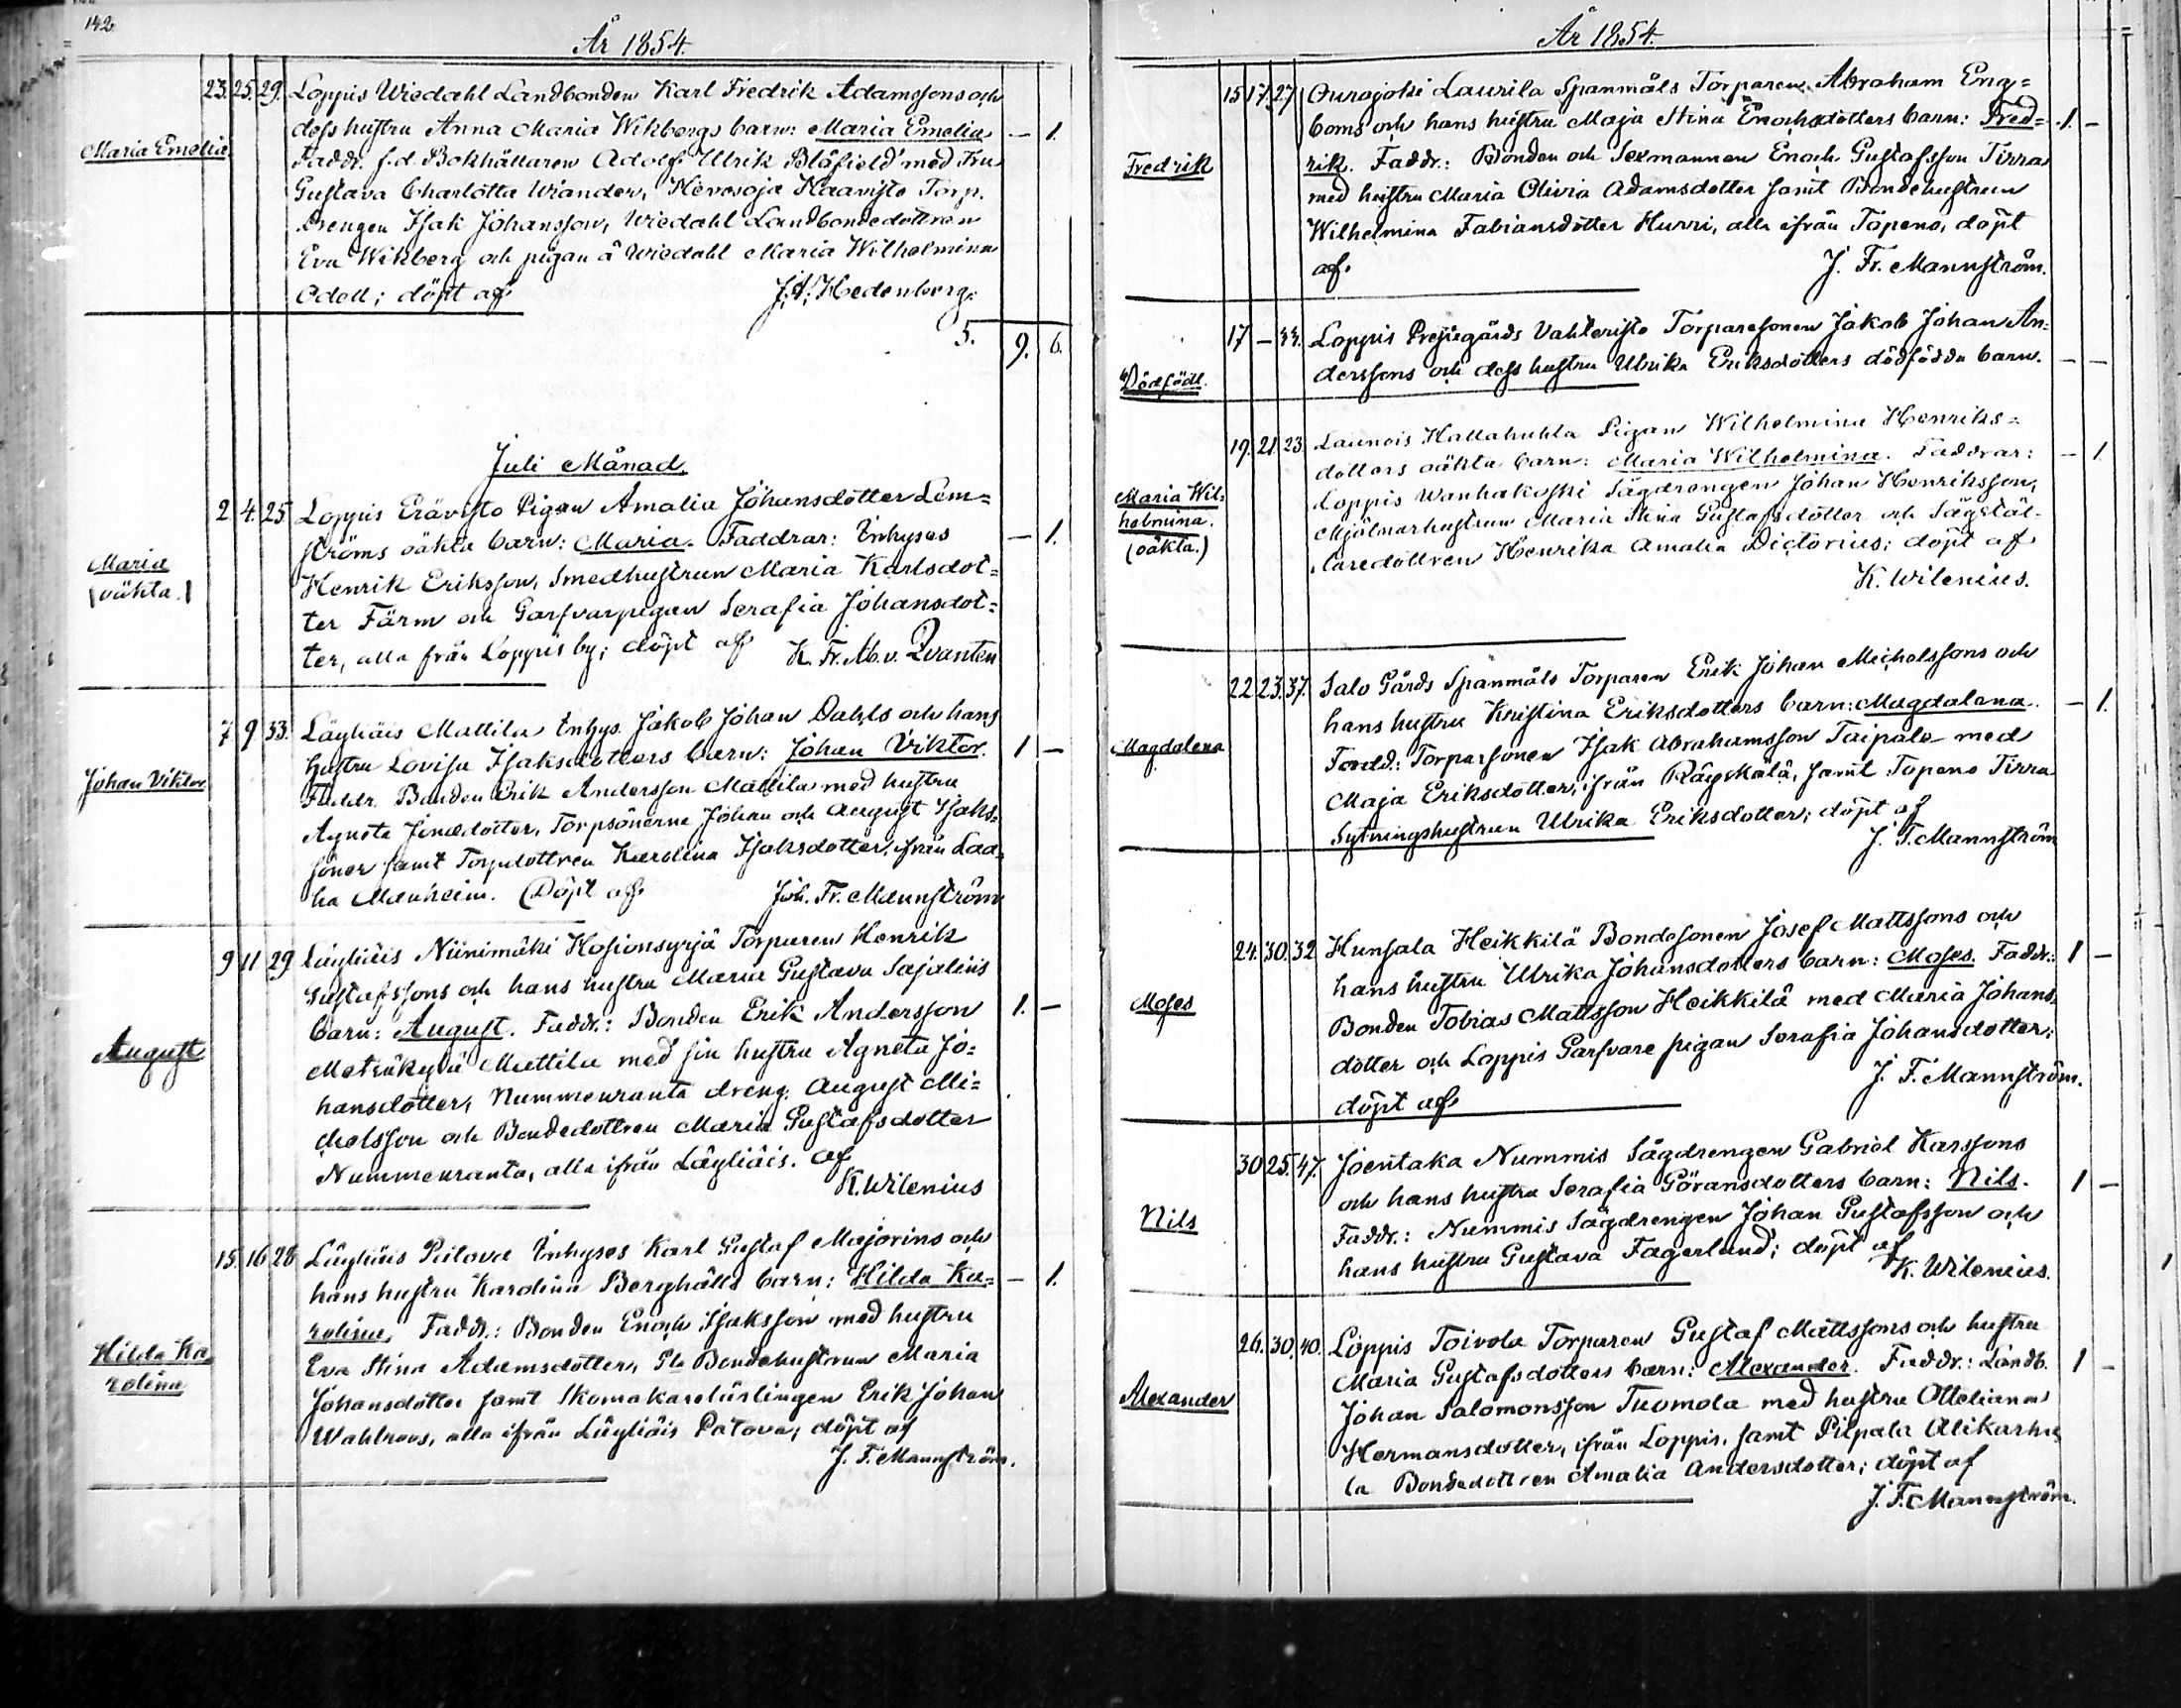 142.
År 1854.
Maria Emelia.
23. 25. 29. Loppis Wiedahl Landbonden Karl Fredrik Adamssons och
dess hustru Anna Maria Wikbergs barn: Maria Emelia — 1.
Faddr. f.d. Bokhållaren Adolf Ulrik Blåfield med Fru
Gustava Charlotta Wiander, Hevosoja Haavisto Torp.
drengen Isak Johansson, Wiedahl Landbondedottren
Eva Wikberg och pigan å Wiedahl Maria Wilhelmina
Odell; döpt af J. A. Hedenberg.
5. 9. 6.
Juli Månad.
Maria
(oäkta.)
2. 4. 25. Loppis Erävisto Pigan Amalia Johansdotter Lem=
ströms oäkta barn: Maria. Faddrar: Inhyses — 1.
Henrik Eriksson, Smedhustrun Maria Karlsdot=
ter Färm och Garfvarpigan Serafia Johansdot=
ter, alla från Loppis by; döpt af K. Fr. Ab. v. Qvanten
Johan Viktor
7 9 33. Läyliäis Mattila Inhys. Jakob Johan Dahls och hans
hustru Lovisa Isaksdotters barn: Johan Viktor. 1 —
Faddr. Bonden Erik Andersson Mattila med hustru
Agneta Jinsdotter, Torpsönerne Johan och August Isaks=
söner samt Torpdottren Karolina Isaksdotter, ifrån Laa=
ha Manheim. Döpt af Joh. Fr. Mannström
August
9 11 29 Läyliäis Niinimäki Hosionsyrjä Torparen Henrik
Gustafssons och hans hustru Maria Gustava Sajalins
barn: August. Faddr.: Bonden Erik Andersson 1. —
Metsäkylä Mattila med sin hustru Agneta Jo=
hansdotter, Nummenranta dreng. August Mi=
chelsson och Bondedottren Maria Gustafsdotter
Nummenranta, alla ifrån Läyliäis. af
K. Wilenius
Hilda Ka=
rolina
15. 16 28 Läyliäis Pietova Inhyses Karl Gustaf Majorins och
hans hustru Karolina Berghälls barn: Hilda Ka= — 1.
rolina, Faddr.: Bonden Enoch Isaksson med hustru
Eva Stina Adamsdotter, Bondehustrun Maria
Johansdotter samt Skomakarelärlingen Erik Johan
Wahlroos, alla ifrån Läyliäis Patova; döpt af
J. F. Mannström.
År 1854.
Fredrik
15 17 27 Ourajoki Laurila Spanmåls Torparen Abraham Eng=
boms och hans hustru Maja Stina Enochsdotters barn: Fred= 1. —
rik. Faddr.: Bonden och Sexmannen Enoch Gustafsson Tirra
med hustru Maria Olivia Adamsdotter samt Bondehustrun
Wilhelmina Fabiansdotter Hurri, alla ifrån Topeno, döpt
af J. Fr. Mannström.
Dödfödt.
17 — 33. Loppis Prestgårds Vahteristo Torparesonen Jakob Johan An=
derssons och dess hustru Ulrika Eriksdotters dödfödda barn. — —
Maria Wil=
helmina.
(oäkta.)
19. 21. 23. Launois Hallakuhla Pigan Wilhelmina Henriks=
dotters oäkta barn: Maria Wilhelmina. Faddrar: — 1
Loppis Wanhakoski Sågdrengen Johan Henriksson,
Mjölnarhustrun Maria Stina Gustafsdotter och Sågstäl=
laredottren Henrika Amalia Dictorius; döpt af
K. Wilenius.
Magdalena
22 23. 37. Salo Gårds Spanmåls Torparen Erik Johan Michelssons och
hans hustru Kristina Eriksdotters barn: Magdalena. — 1.
Fadd.: Torparsonen Isak Abrahamsson Taipale med
Maja Eriksdotter, ifrån Räyskälä, samt Topeno Tirra
Sytningshustrun Ulrika Eriksdotter; döpt af
J. F. Mannström
Moses
24. 30. 32 Hunsala Heikkilä Bondesonen Josef Mattssons och
hans hustru Ulrika Johansdotters barn: Moses. Faddr.: 1 —
Bonden Tobias Mattsson Heikkilä med Maria Johans=
dotter och Loppis Garfvare pigan Serafia Johansdotter;
döpt af J. F. Mannström.
Nils
30 25. 47. Joentaka Nummis Sågdrengen Gabriel Karssons
och hans hustru Serafia Göransdotters barn: Nils. 1 —
Faddr.: Nummis Sågdrengen Johan Gustafsson och
hans hustru Gustava Fagerlund; döpt af
K. Wilenius.
1
Alexander
26. 30. 40. Loppis Toivola Torparen Gustaf Mattssons och hustru
Maria Gustafsdotters barn: Alexander. Faddr.: Landb. 1 —
Johan Salomonsson Tuomola med hustru Otteliana
Hermansdotter, ifrån Loppis, samt Pilpala Alikarhu=
la Bondedottren Amalia Andersdotter; döpt af
J. F. Mannström.